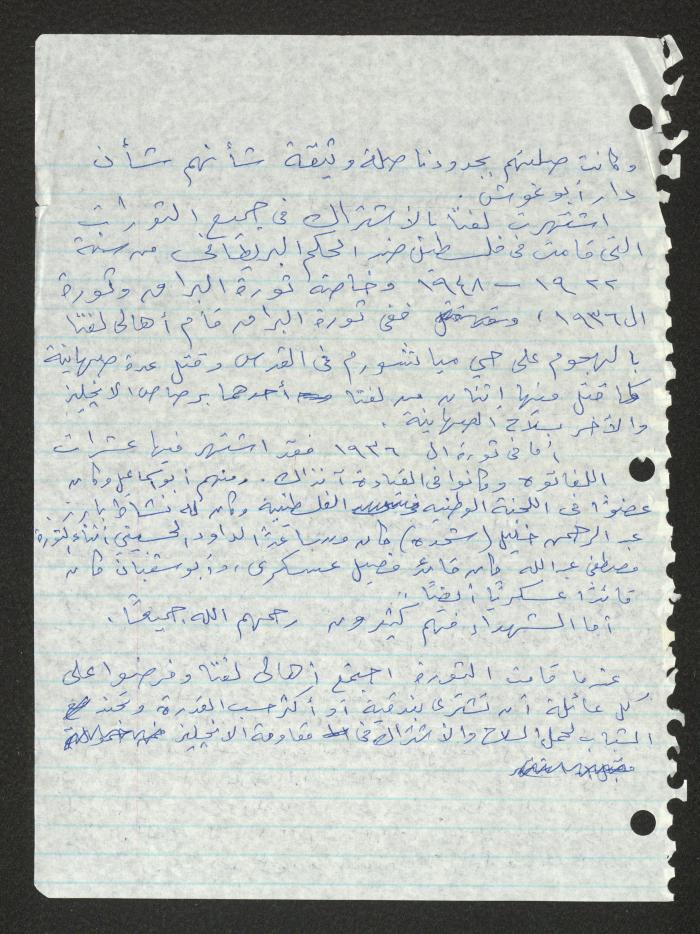 وكانت صلتهم بجدودنا صلة وثيقة شأنهم شأن
دار أبو غوش.
اشتهرت لفتا بالاشتراك في جميع الثورات
التي قامت في فلسطين ضد الحكم البريطاني من سنة
١٩٢٢ – ١٩٤٨ وخاصة ثورة البراق وثورة
ال ١٩٣٦، ففي ثورة البراق قام أهالي لفتا
بالهجوم على حي ميا شورم في القدس وقتل عدة صهاينة
كما قتل منها إثنان من لفتا أحدهما برصاص الانجليز
والآخر بسلاح الصهاينة.
أما في ثورة ال ١٩٣٦ فقد اشتهر فيها عشرات
اللفاتوه وكانوا في القيادة آنذاك. ومنهم أبو اسماعل وكان
عضوًا في اللجنة الوطنيه الفلسطينية وكان له نشاط بارز
عبد الرحمن خليل (شحده) كان مساعدًا لداود الحسيني أثناء الثورة
مصطفى عبد الله كان قائد فصيل عسكري، وأبو سفيان كان
قائدًا عسكريًا أيضًا.
أما الشهداء فهم كثيرون رحمهم الله جميعًا.
عندما قامت الثورة اجتمع أهالي لفتا وفرضوا على
كل عائلة أن تشتري بندقية أو أكثر حسب القدرة وتجند
الشباب لحمل السلاح والاشتراك في مقاومة الانجليز